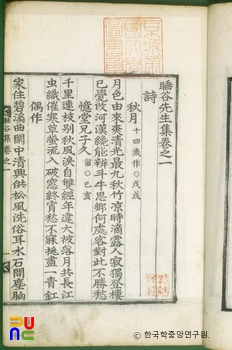 睡谷先生集卷之一
詩
秋月 十四歲作○戊戌
月色由來爽清光最九秋竹凉時滴露人寂獨登樓
已覺 河漢纔能辨斗牛思鄕何處客對此不勝愁
憶堂兄子久 留○己亥
千里連枝別秋風淚自雙經年違大被落月共長江
虫織催寒草螢流入破窓終宵愁不寐挑盡一靑釭
偶作
家住碧溪曲閒中清興供松風洗俗耳水石 塵
谷集卷之一
한국학중앙연구원